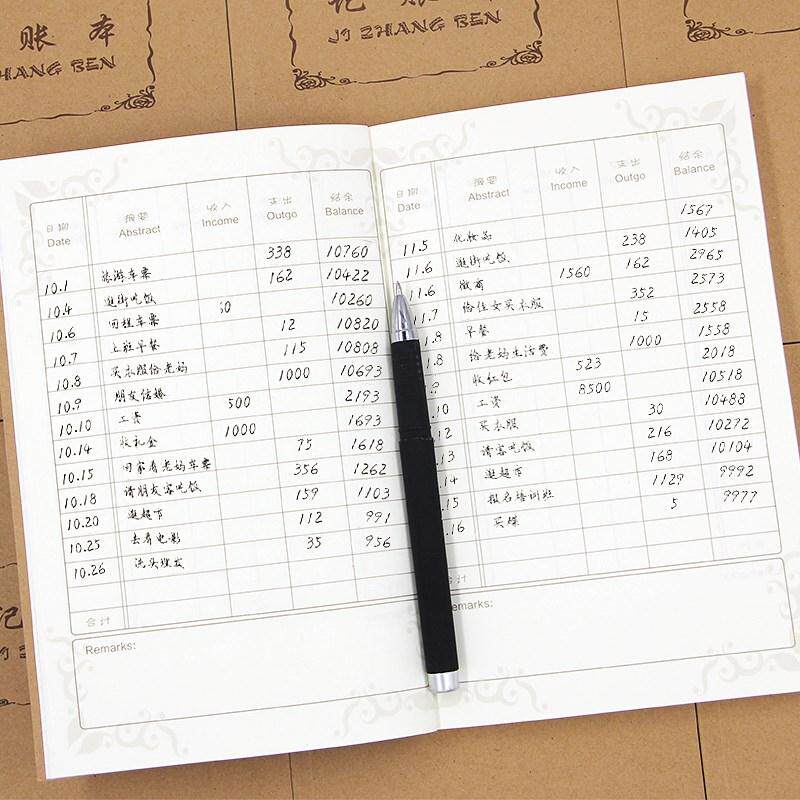 账本
ZHANG BEN
记账
JI ZHANG BEN
日期 摘要 收入 支出 结余
Date Abstract Income Outgo Balance
10.1 旅游车票 338 10760
10.4 逛街吃饭 162 10422
10.6 回程车票 10260
10.7 上班早餐 12 10820
10.8 买衣服给老妈 115 10808
10.9 朋友结婚 1000 10693
10.10 工资 500 2193
10.14 收礼金 1000 1693
10.15 回家看老妈车票 75 1618
10.18 请朋友家吃饭 356 1262
10.20 逛超市 159 1103
10.25 去看电影 112 991
10.26 洗头理发 35 956
合计
Remarks:
日期 摘要 收入 支出 结余
Date Abstract Income Outgo Balance
11.5 化妆品 1567
11.6 逛街吃饭 238 1405
11.6 微商 1560 162 2965
11.7 给侄女买衣服 352 2573
.8 早餐 15 2558
.8 给老妈生活费 1000 1558
收红包 523 2018
.10 工资 8500 10518
12 买衣服 30 10488
.13 请客吃饭 216 10272
.14 逛超市 168 10104
.15 报名培训班 1129 9992
.16 买碟 5 9977
合计
Remarks: